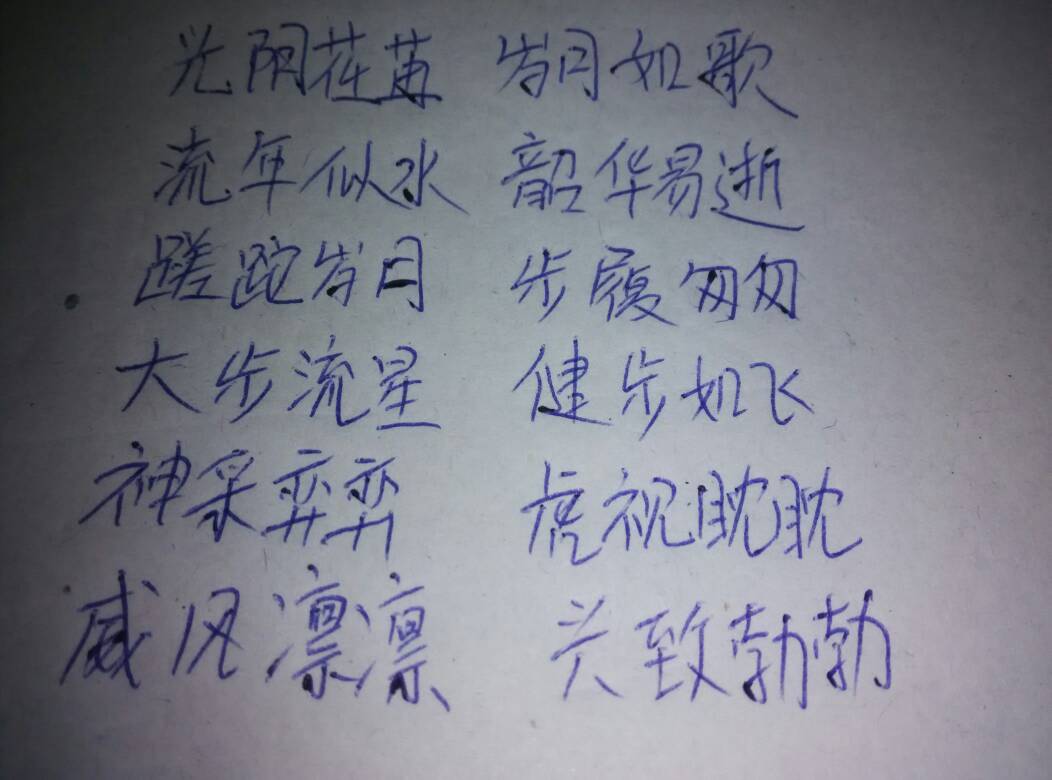 光阴荏苒 岁月如歌
流年似水 韶华易逝
蹉跎岁月 步履匆匆
大步流星 健步如飞
神采奕奕 虎视眈眈
威风凛凛 兴致勃勃